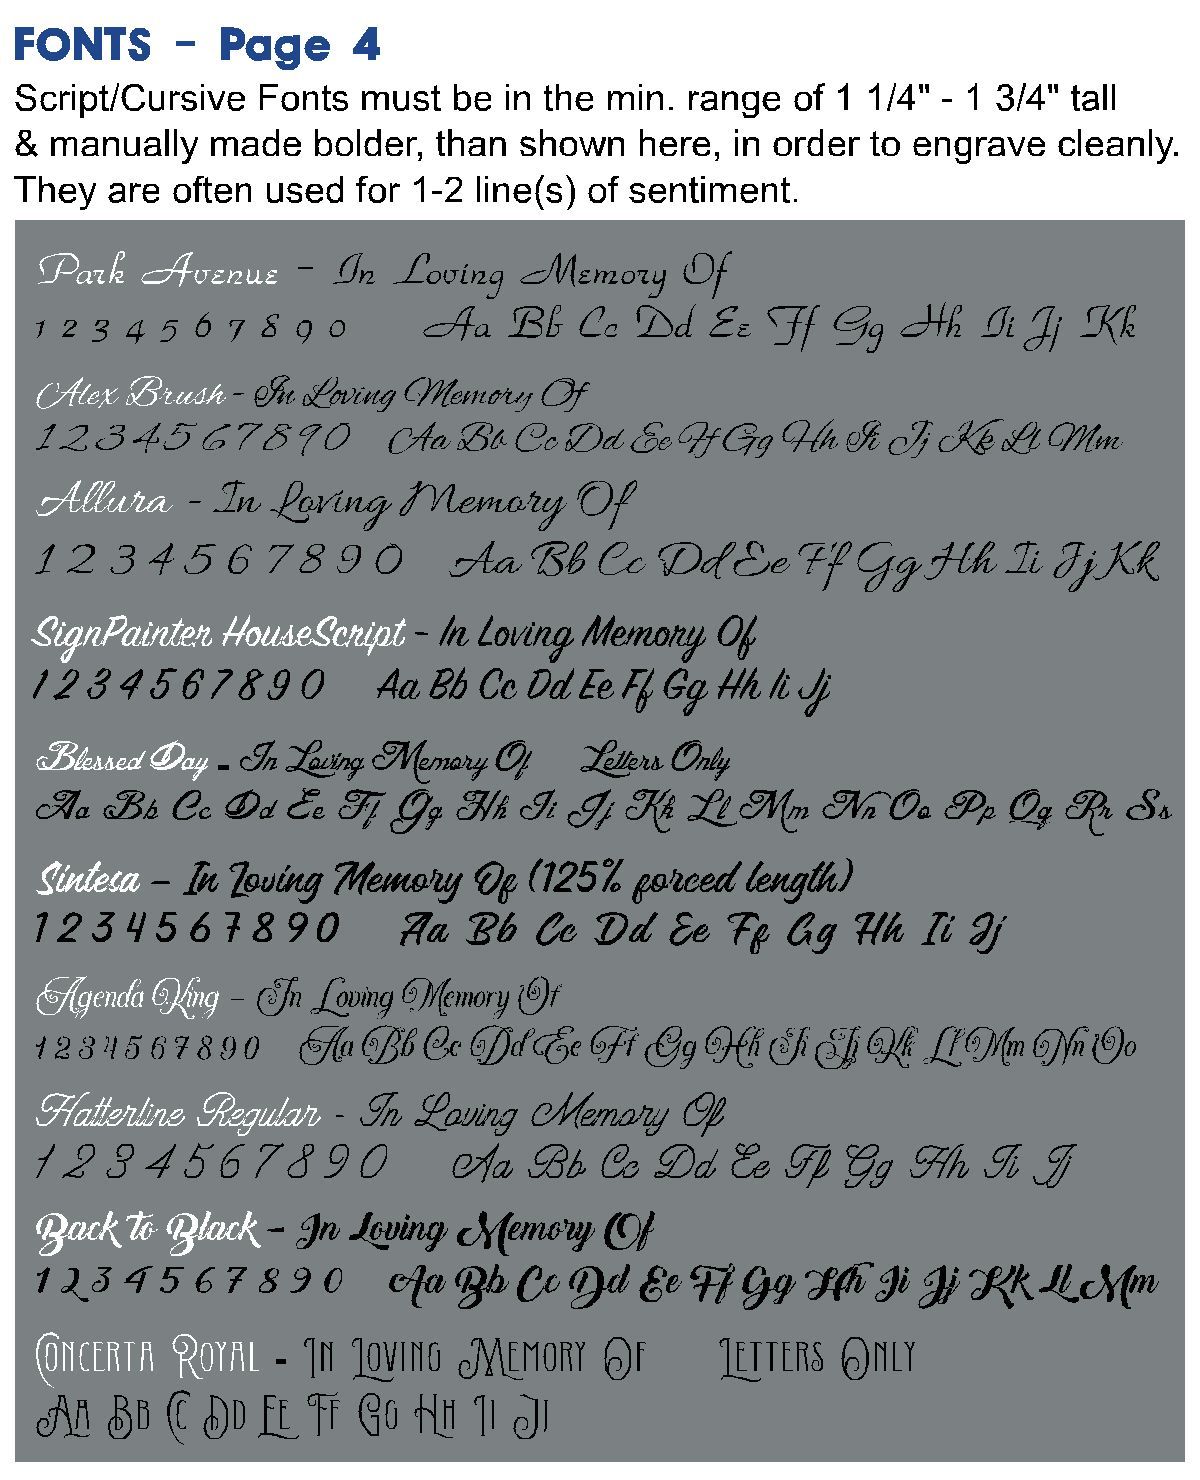 FONTS - Page 4
Script/Cursive Fonts must be in the min. range of 1 1/4" - 1 3/4" tall
& manually made bolder, than shown here, in order to engrave cleanly.
They are often used for 1-2 line(s) of sentiment.
Park Avenue - In Loving Memory Of
1 2 3 4 5 6 7 8 9 0 Aa Bb Cc Dd Ee Ff Gg Hh Ii Jj Kk
Alex Brush - In Loving Memory Of
1 2 3 4 5 6 7 8 9 0 Aa Bb Cc Dd Ee Ff Gg Hh Ii Jj Kk Ll Mm
Allura - In Loving Memory Of
1 2 3 4 5 6 7 8 9 0 Aa Bb Cc Dd Ee Ff Gg Hh Ii Jj Kk
SignPainter HouseScript - In Loving Memory Of
1 2 3 4 5 6 7 8 9 0 Aa Bb Cc Dd Ee Ff Gg Hh Ii Jj
Blessed Day - In Loving Memory Of Letters Only
Aa Bb Cc Dd Ee Ff Gg Hh Ii Jj Kk Ll Mm Nn Oo Pp Qq Rr Ss
Sintesa – In Loving Memory Of (125% forced length)
1 2 3 4 5 6 7 8 9 0 Aa Bb Cc Dd Ee Ff Gg Hh Ii Jj
Agenda King – In Loving Memory Of
1 2 3 4 5 6 7 8 9 0 Aa Bb Cc Dd Ee Ff Gg Hh Ii Jj Kk Ll Mm Nn Oo
Hatterline Regular - In Loving Memory Of
1 2 3 4 5 6 7 8 9 0 Aa Bb Cc Dd Ee Ff Gg Hh Ii Jj
Back to Black – In Loving Memory Of
1 2 3 4 5 6 7 8 9 0 Aa Bb Cc Dd Ee Ff Gg Hh Ii Jj Kk Ll Mm
Concerta Royal - In Loving Memory Of Letters Only
Aa Bb Cc Dd Ee Ff Gg Hh Ii Jj